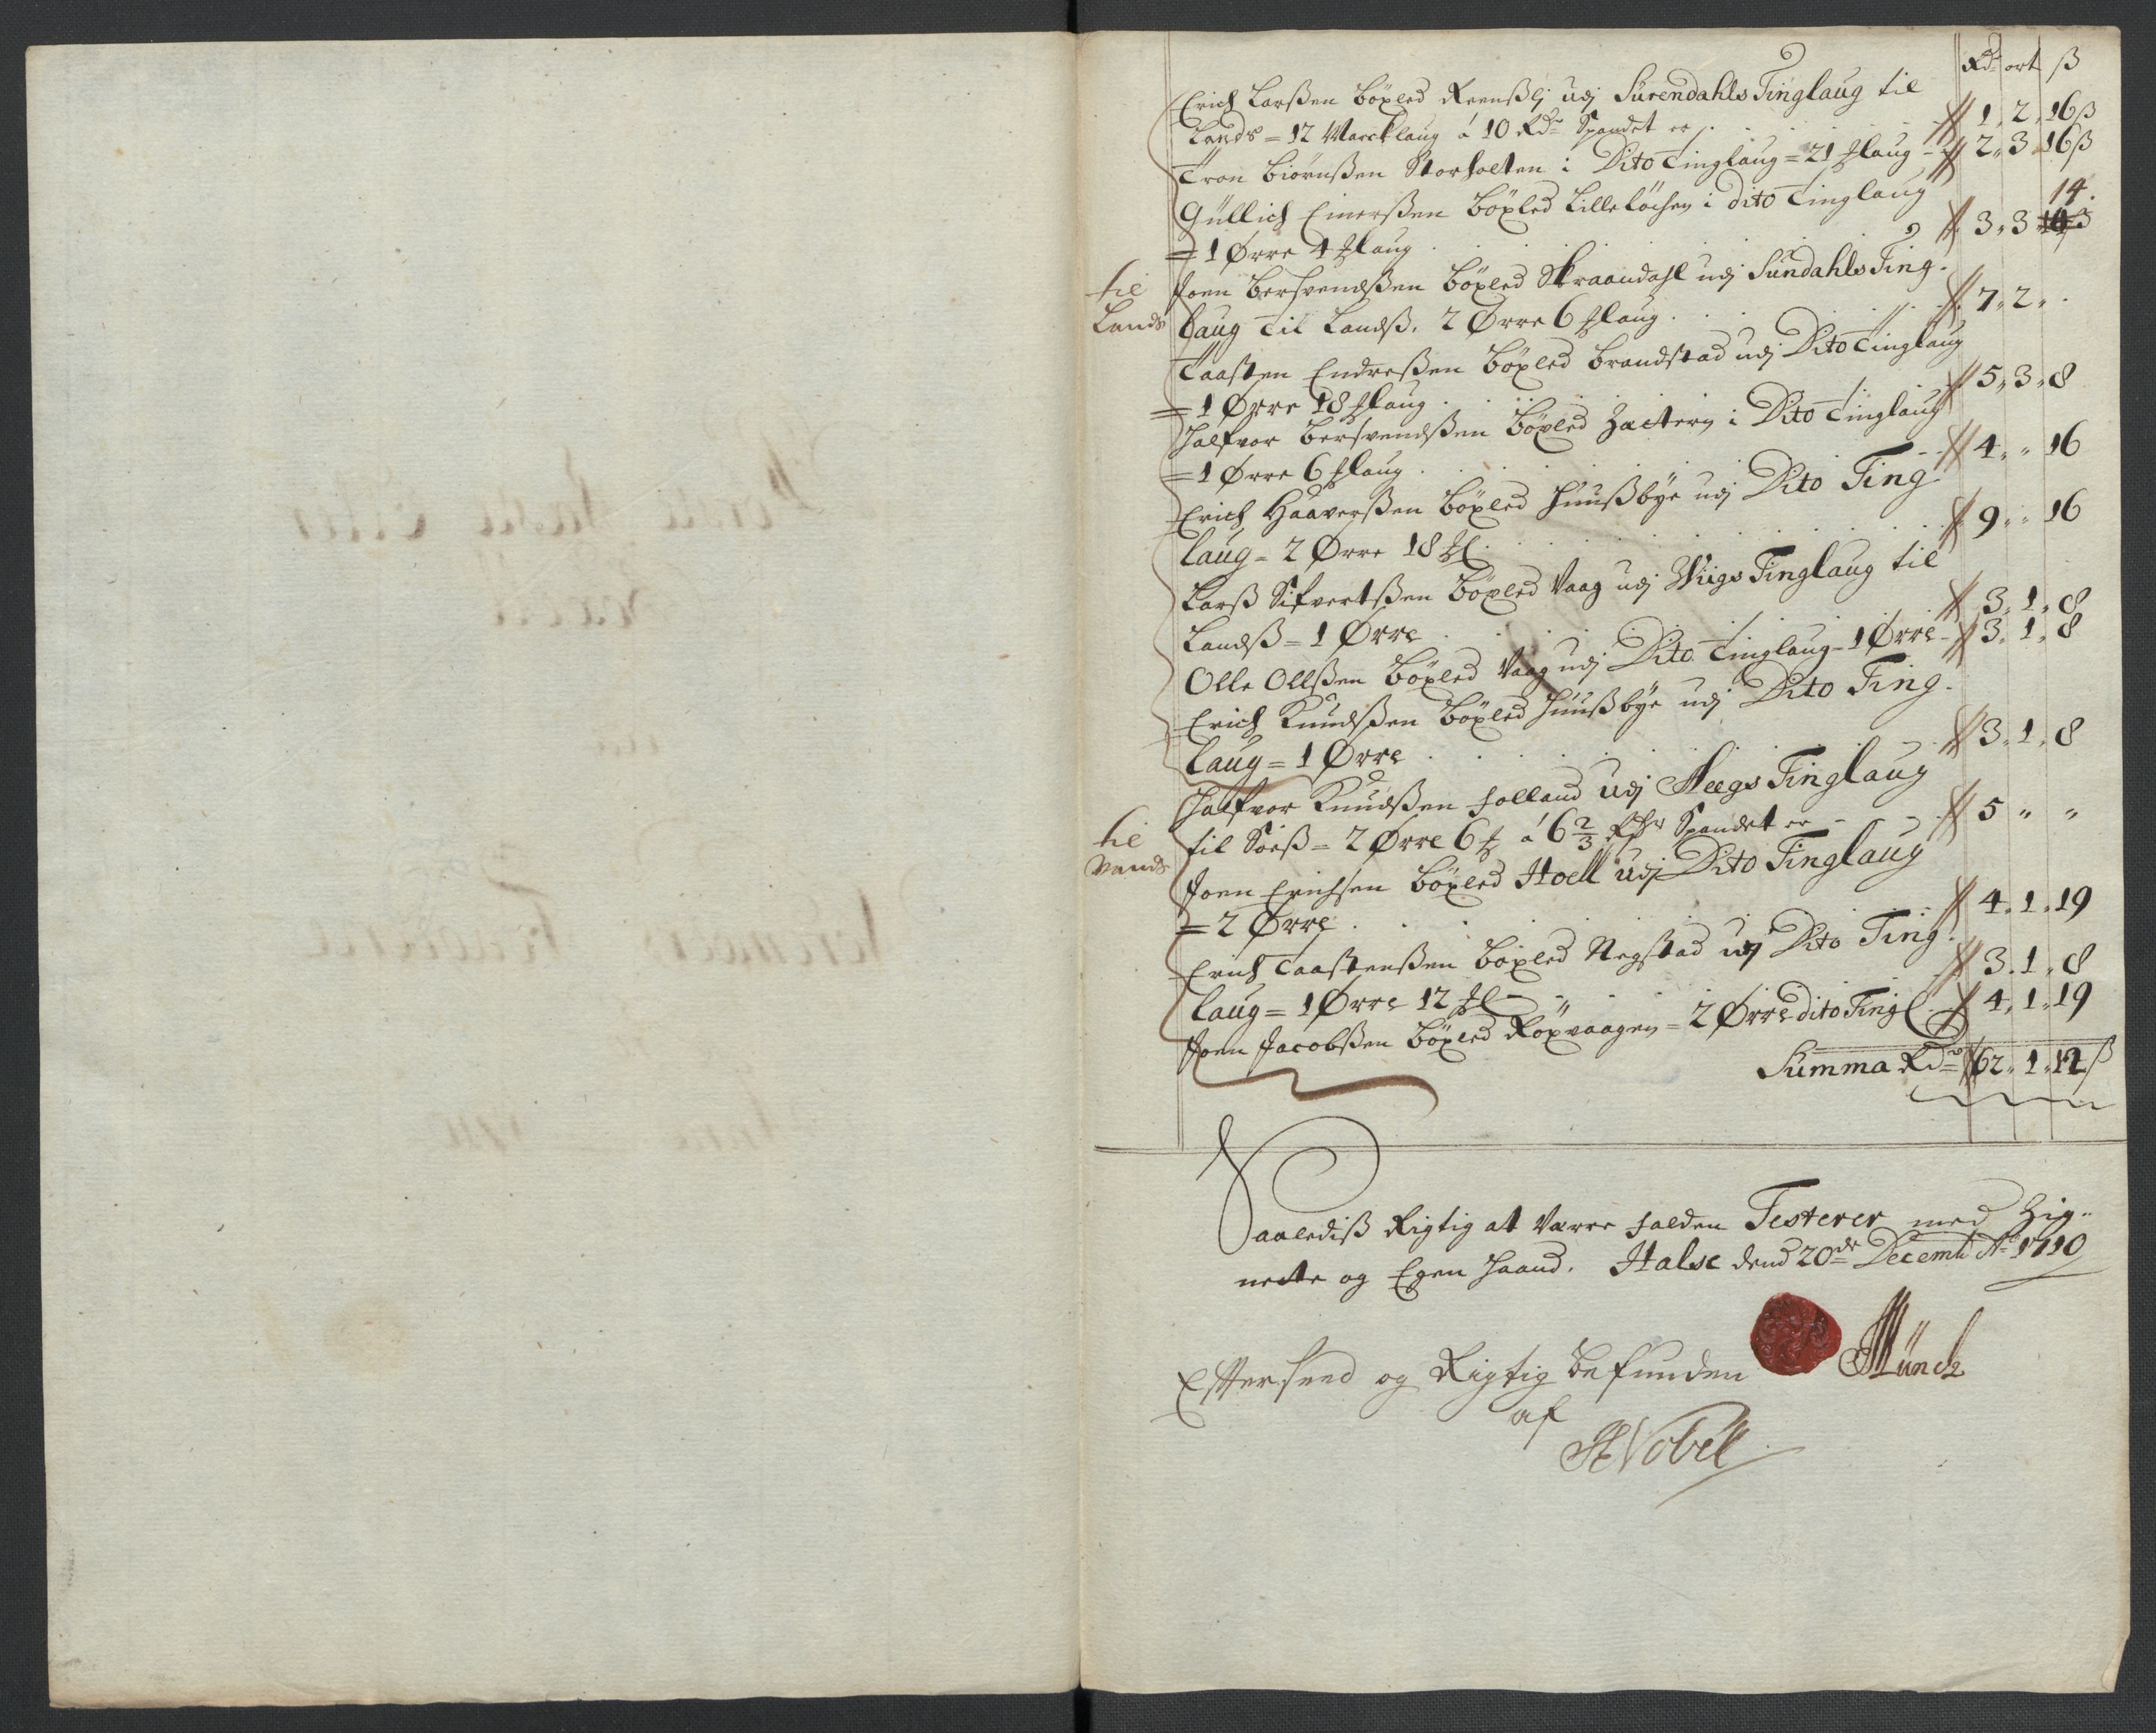 Rd ort ß
Erich Larßen böxled Reenßlj udj Surendahls Tinglaug til
Lands = 12 Marcklaug á 10 Rdr Spandet er 1 " 2 " 16 ß
Tron Biørnßen Storholten i Dito Tinglaug = 21 ℔laug 2 " 3 " 16 ß
Gullich Einerßen böxled Lilleløchen i dito Tinglaug 14.
= 1 Ørre 4 ℔laug 3 " 3 "
til Joen Bersvendßen böxled Skraandahl udj Sundahls Ting-
Lands laug til Landß, 2 Ørre 6 ℔laug 7 " 2 "
Taasten Endreßen böxled Brandstad udj Dito Tinglaug
= 1 Ørre 18 ℔laug 5 " 3 " 8
Halfvor Bersvendßen böxled Hættern i Dito Tinglaug
= 1 Ørre 6 ℔laug 4 " " 16
Erich Haaverßen böxled Huußbye udj Dito Ting-
laug = 2 Ørre 18 ℔l 9 " " 16
Larß Sifvertßen böxled Vaag udj Wiigs Tinglaug til
Landß = 1 Ørre 3 " 1 " 8
Olle Ollßen böxled Vaag udj Dito Tinglaug = 1 Ørre 3 " 1 " 8
Erich Knudßen böxled Huußbye udj Dito Ting-
laug = 1 Ørre 3 " 1 " 8
Halfvor Knudßen Holland udj Neegs Tinglaug
til til Søeß = 2 Ørre 6 ℔ á 6 2/3 Rdr Spandet er 5 " "
Vands Joen Erichsen böxled Hoell udj Dito Tinglaug
= 2 Ørre 4 " 1 " 19
Erich Taastenßen böxled Negstad udj Dito Ting-
laug = 1 Ørre 12 ℔l 3 " 1 " 8
Joen Jacobßen böxled Röxvaagen = 2 Ørre dito Tingl 4 " 1 " 19
Summa Rdr 62 " 1 " 12 ß
Saalediß Rigtig at være falden Testerer med Zig-
nette og Egen Haand. Halse dend 20de Decemb Ao 1710
Münch
Efterseed og Rigtig befunden
af
HNobel